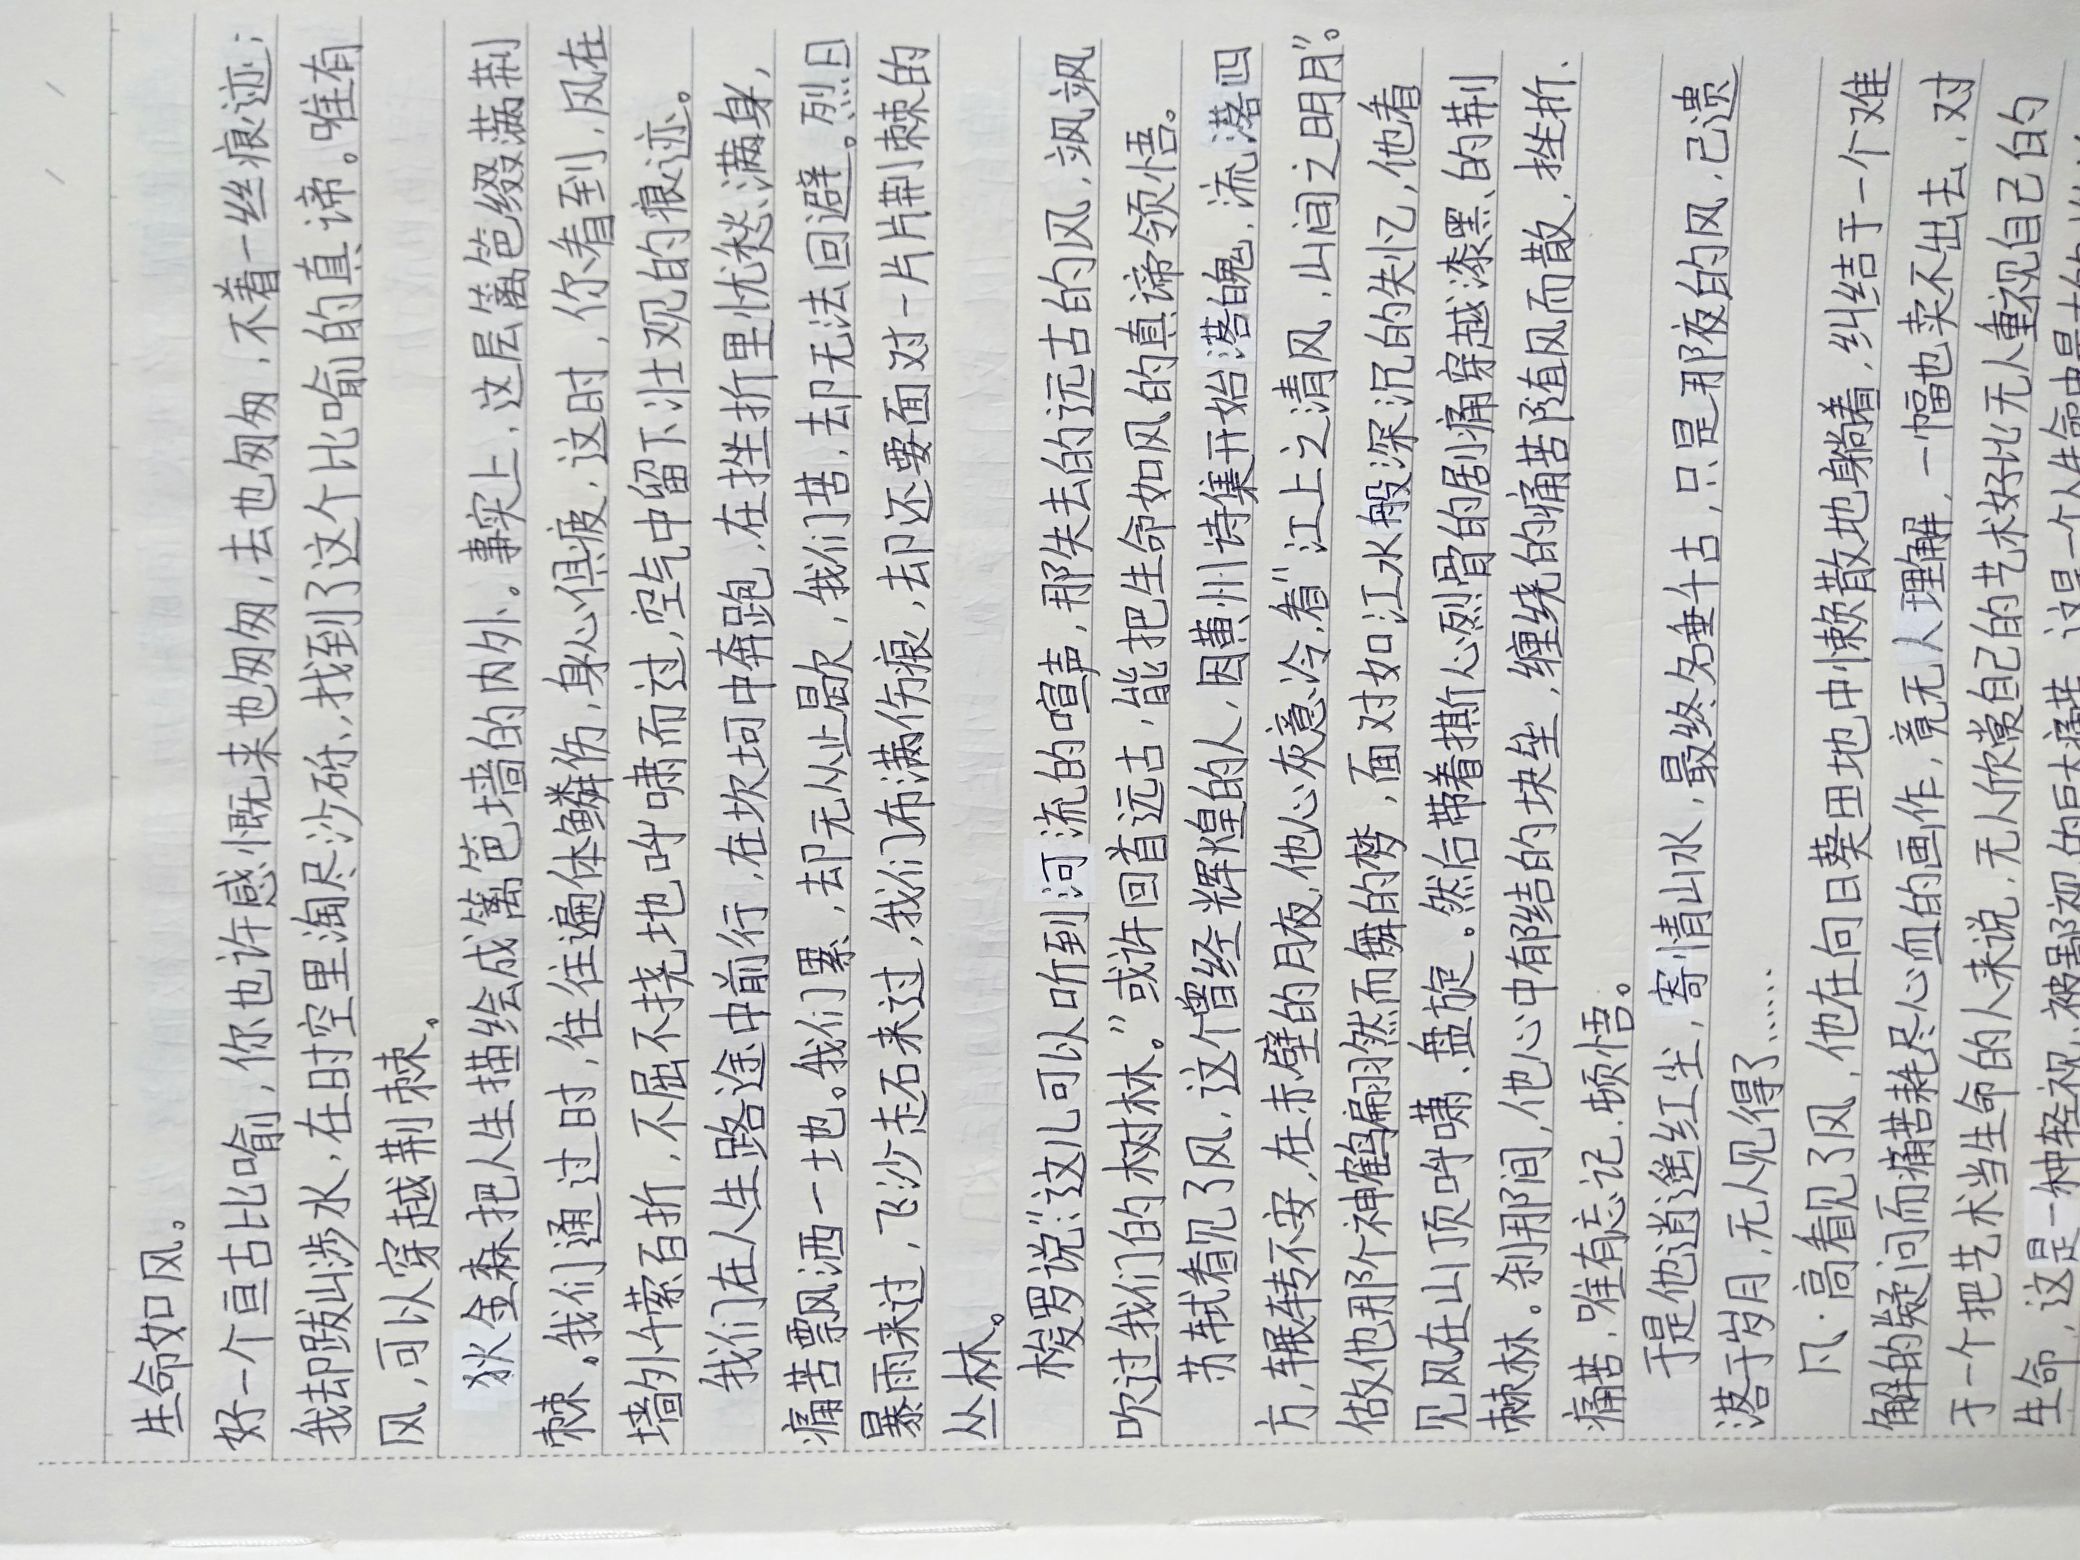 生命如风。
好一个亘古比喻，你也许感慨既来也匆匆，去也匆匆，不着一丝痕迹；
我却跋山涉水，在时空里淘尽沙砾、找到了这个比喻的真谛。唯有
风，可以穿越荆棘。
狄金森把人生描绘成篱笆墙的内外。事实上，这层篱笆缀满荆
棘。我们通过时，往往遍体鳞伤，身心俱疲，这时，你看到，风在
墙外萦百折，不屈不挠地呼啸而过，空气中留下壮观的痕迹。
我们在人生路途中前行，在坎坷中奔跑，在挫折里忧愁满身，
痛苦飘风洒一地。我们累，却无从止歇，我们苦，却无法回避。烈日
暴雨来过，飞沙走石来过，我们布满伤痕，却还要面对一片片荆棘的
丛林。
梭罗说：“这儿可以听到河流的喧声，那失去的远古的风，飒飒
吹过我们的树林。”或许回首远古，能把生命如风的真谛领悟。
苏轼看见了风，这个曾经辉煌的人，因黄州诗集开始落魄，流落四
方，辗转不安，在赤壁的月夜，他心灰意冷，看“江上之清风，山间之明月”。
做他那个神鹤翩然而舞的梦，面对如江水般深沉的失忆，他看
见风在山顶呼啸、盘旋。然后带着撕心烈骨的剧痛穿越漆黑的荆
棘林。刹那间，他心中有郁结的块垒，缠绕的痛苦随风而散，挫折、
痛苦，唯有忘记、顿悟。
于是他逍遥红尘，寄情山水，最终名垂千古，只是那夜的风，已遗
落于岁月，无人见得了……
凡·高看见了风，他在向日葵田地中懒散地躺着，纠结于一个难
解的疑问而痛苦耗尽心血的画作，竟无人理解，一幅也卖不出去，对
于一个把艺术当生命的人来说，无人欣赏自己的艺术好比无人重视自己的
生命，这是一种轻视、被鄙视的巨大痛苦，这是一个人生命中最大的